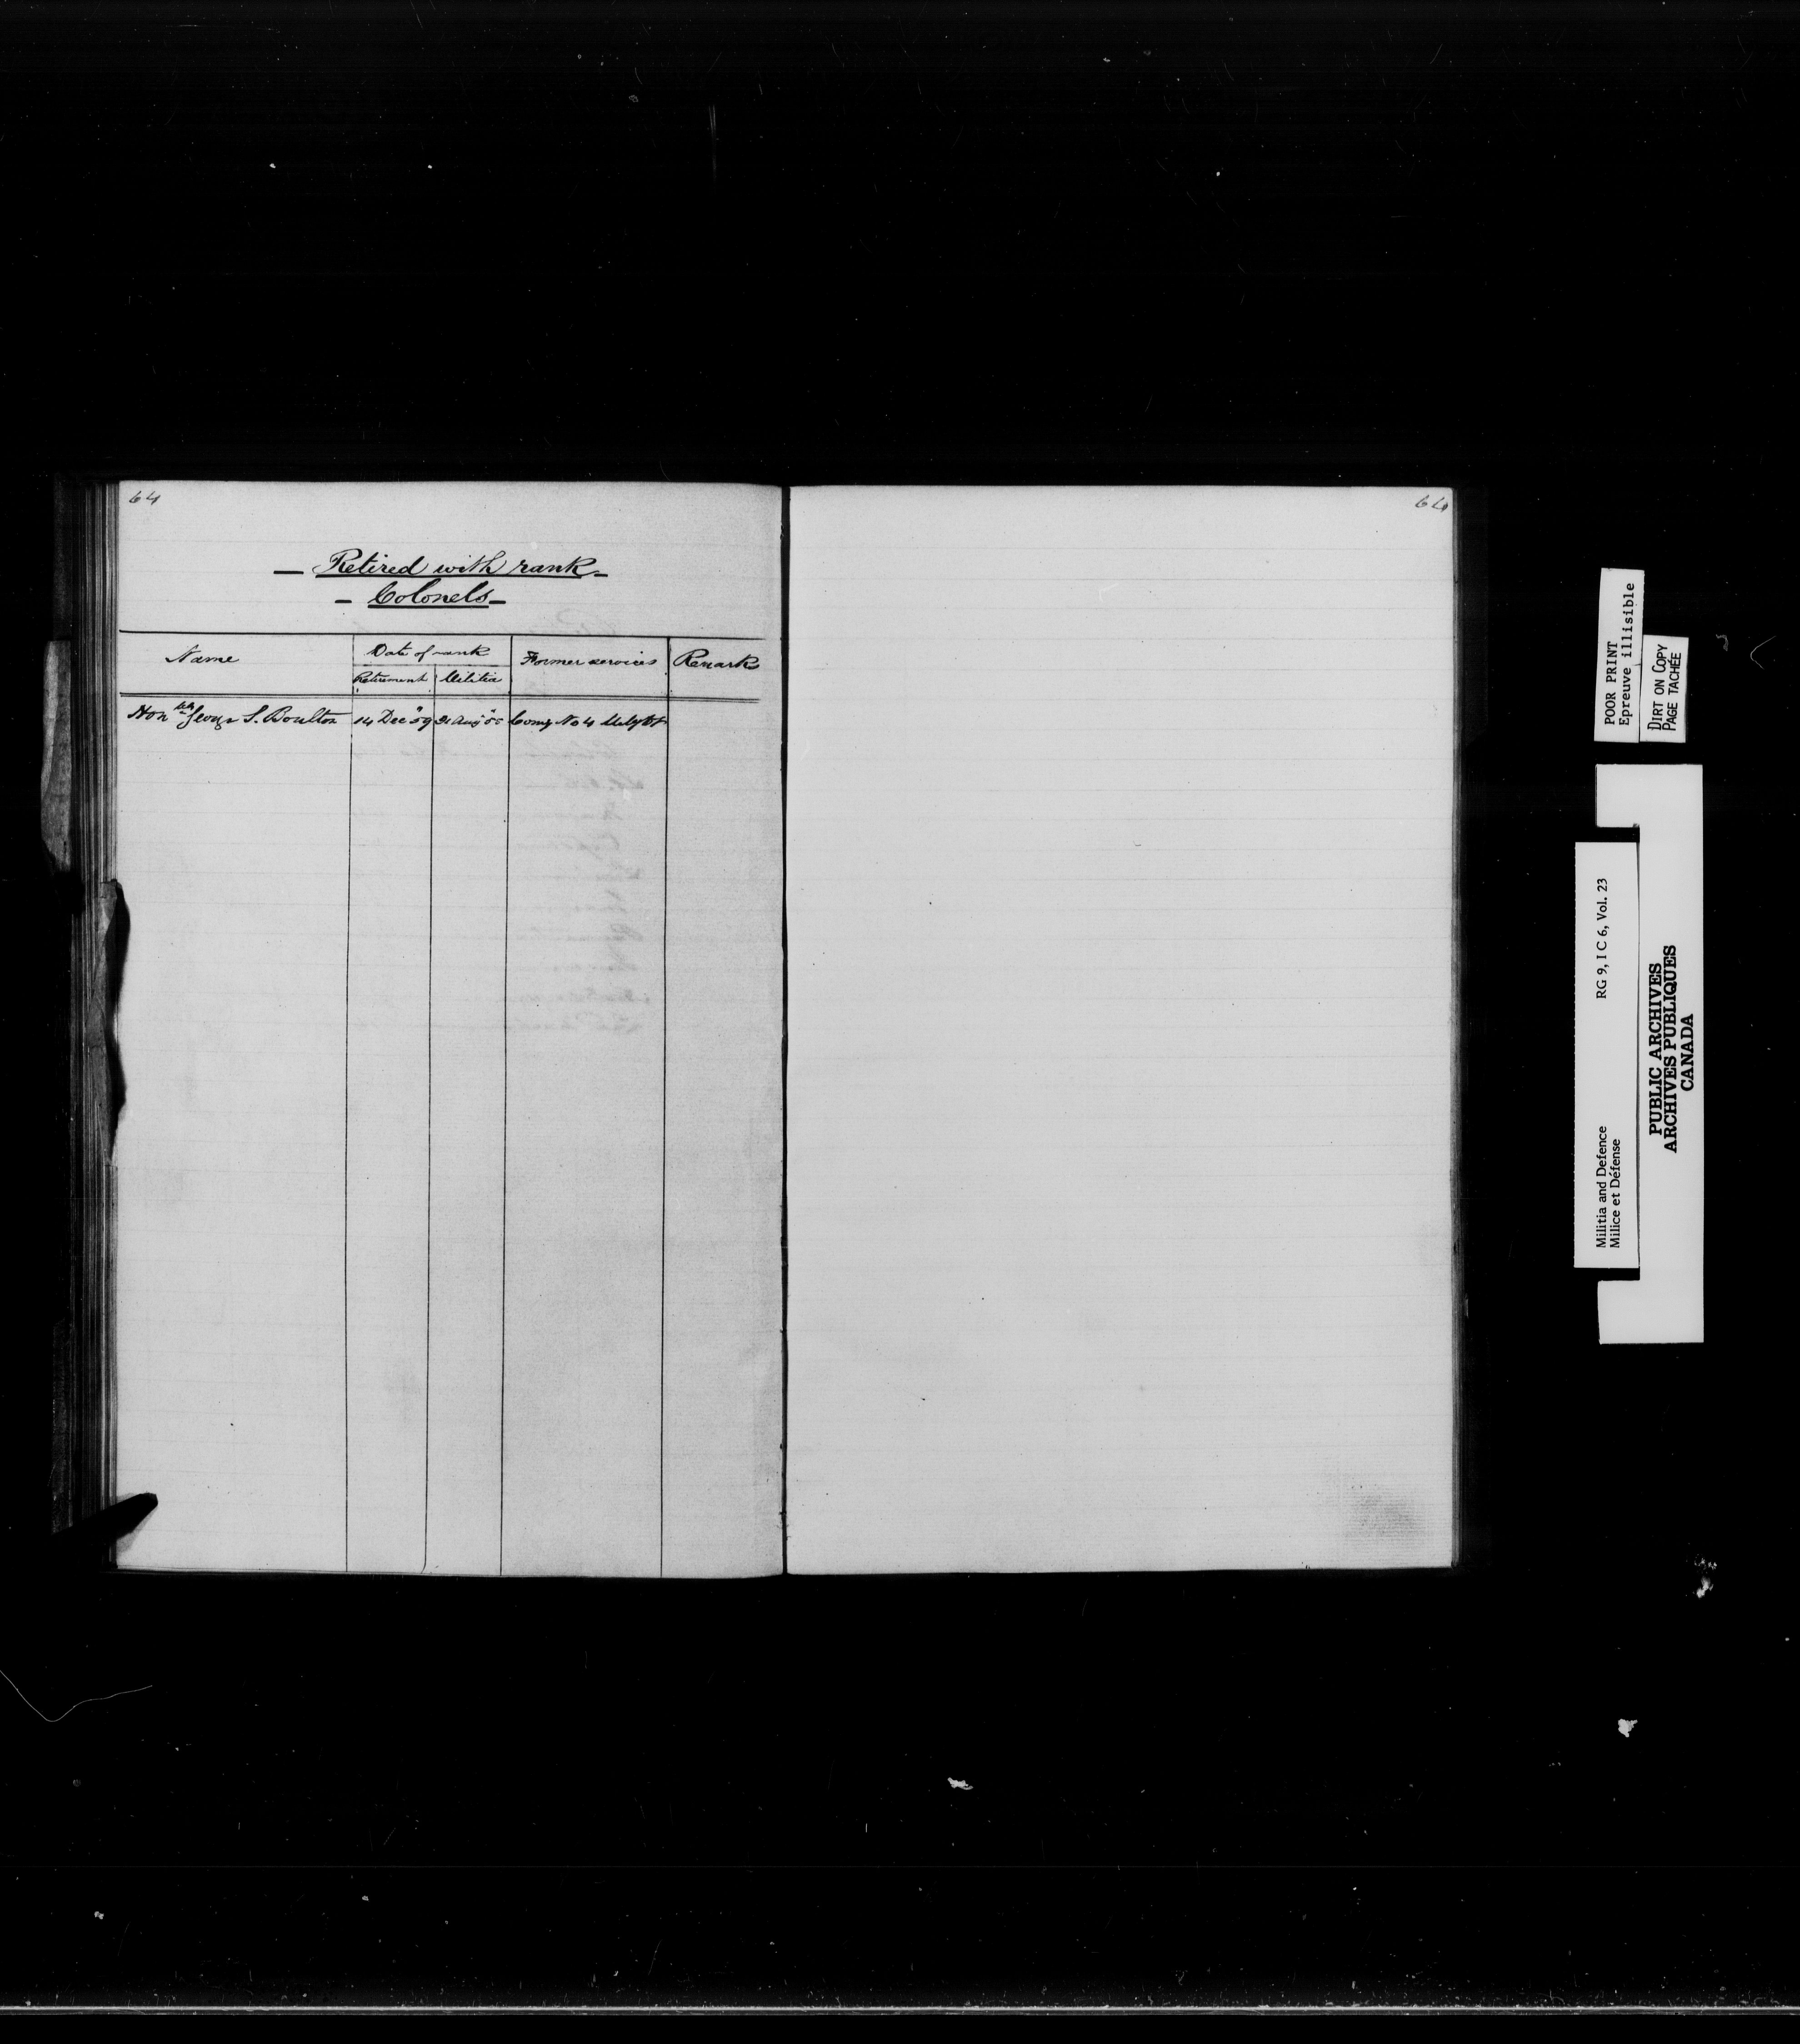 64
Retired with rank
Colonels
Name Date of rank Former services Remarks
Retirement Militia
Honble George S. Boulton 14 Dec "59 21 Aug "55 Comg No 4 Mily Dt
64
POOR PRINT
Epreuve illisible
DIRT ON COPY
PAGE TACHÉE
Militia and Defence RG 9, I C 6, Vol. 23
Milice et Défense
PUBLIC ARCHIVES
ARCHIVES PUBLIQUES
CANADA